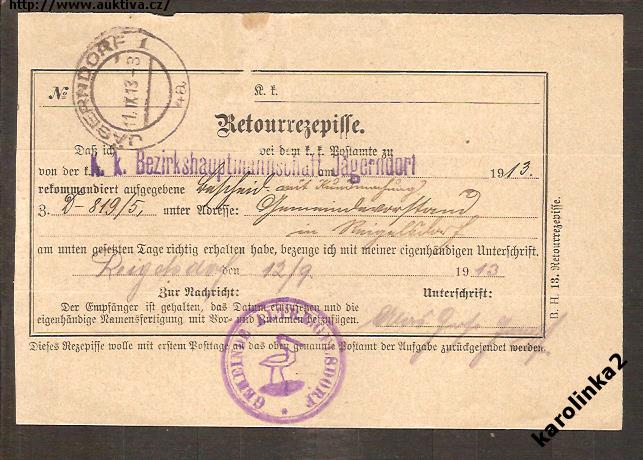 http://www.auktiva.cz/
JÄGERNDORF 1
11.IX.13-8
4a
№
K. k.
Retourrezepisse.
Daß ich bei dem k. k. Postamte zu
K. k. Bezirkshauptmannschaft Jägerndorf
von der k. am 1913.
rekommandiert aufgegebene Bescheid mit Kundmachung
Z. D-819/5, unter Adresse: Gemeindevorstand
in
am unten gesetzten Tage richtig erhalten habe, bezeuge ich mit meiner eigenhändigen Unterschrift.
den 12/9 1913
Zur Nachricht: Unterschrift:
Der Empfänger ist gehalten, das Datum einzusehen und die
eigenhändige Namensfertigung mit Vor- und Zunamen beizufügen.
Dieses Rezepisse wolle mit erstem Posttage an das oben genannte Postamt der Aufgabe zurückgesendet werden.
B. H. 13. Retourrezepisse.
GEMEINDE
karolinka2